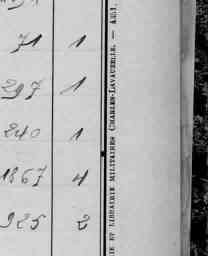 71 1
297 1
240 1
1367 4
925 2
IE ET LIBRAIRIE MILITAIRES CHARLES-LAVAUZELLE. —